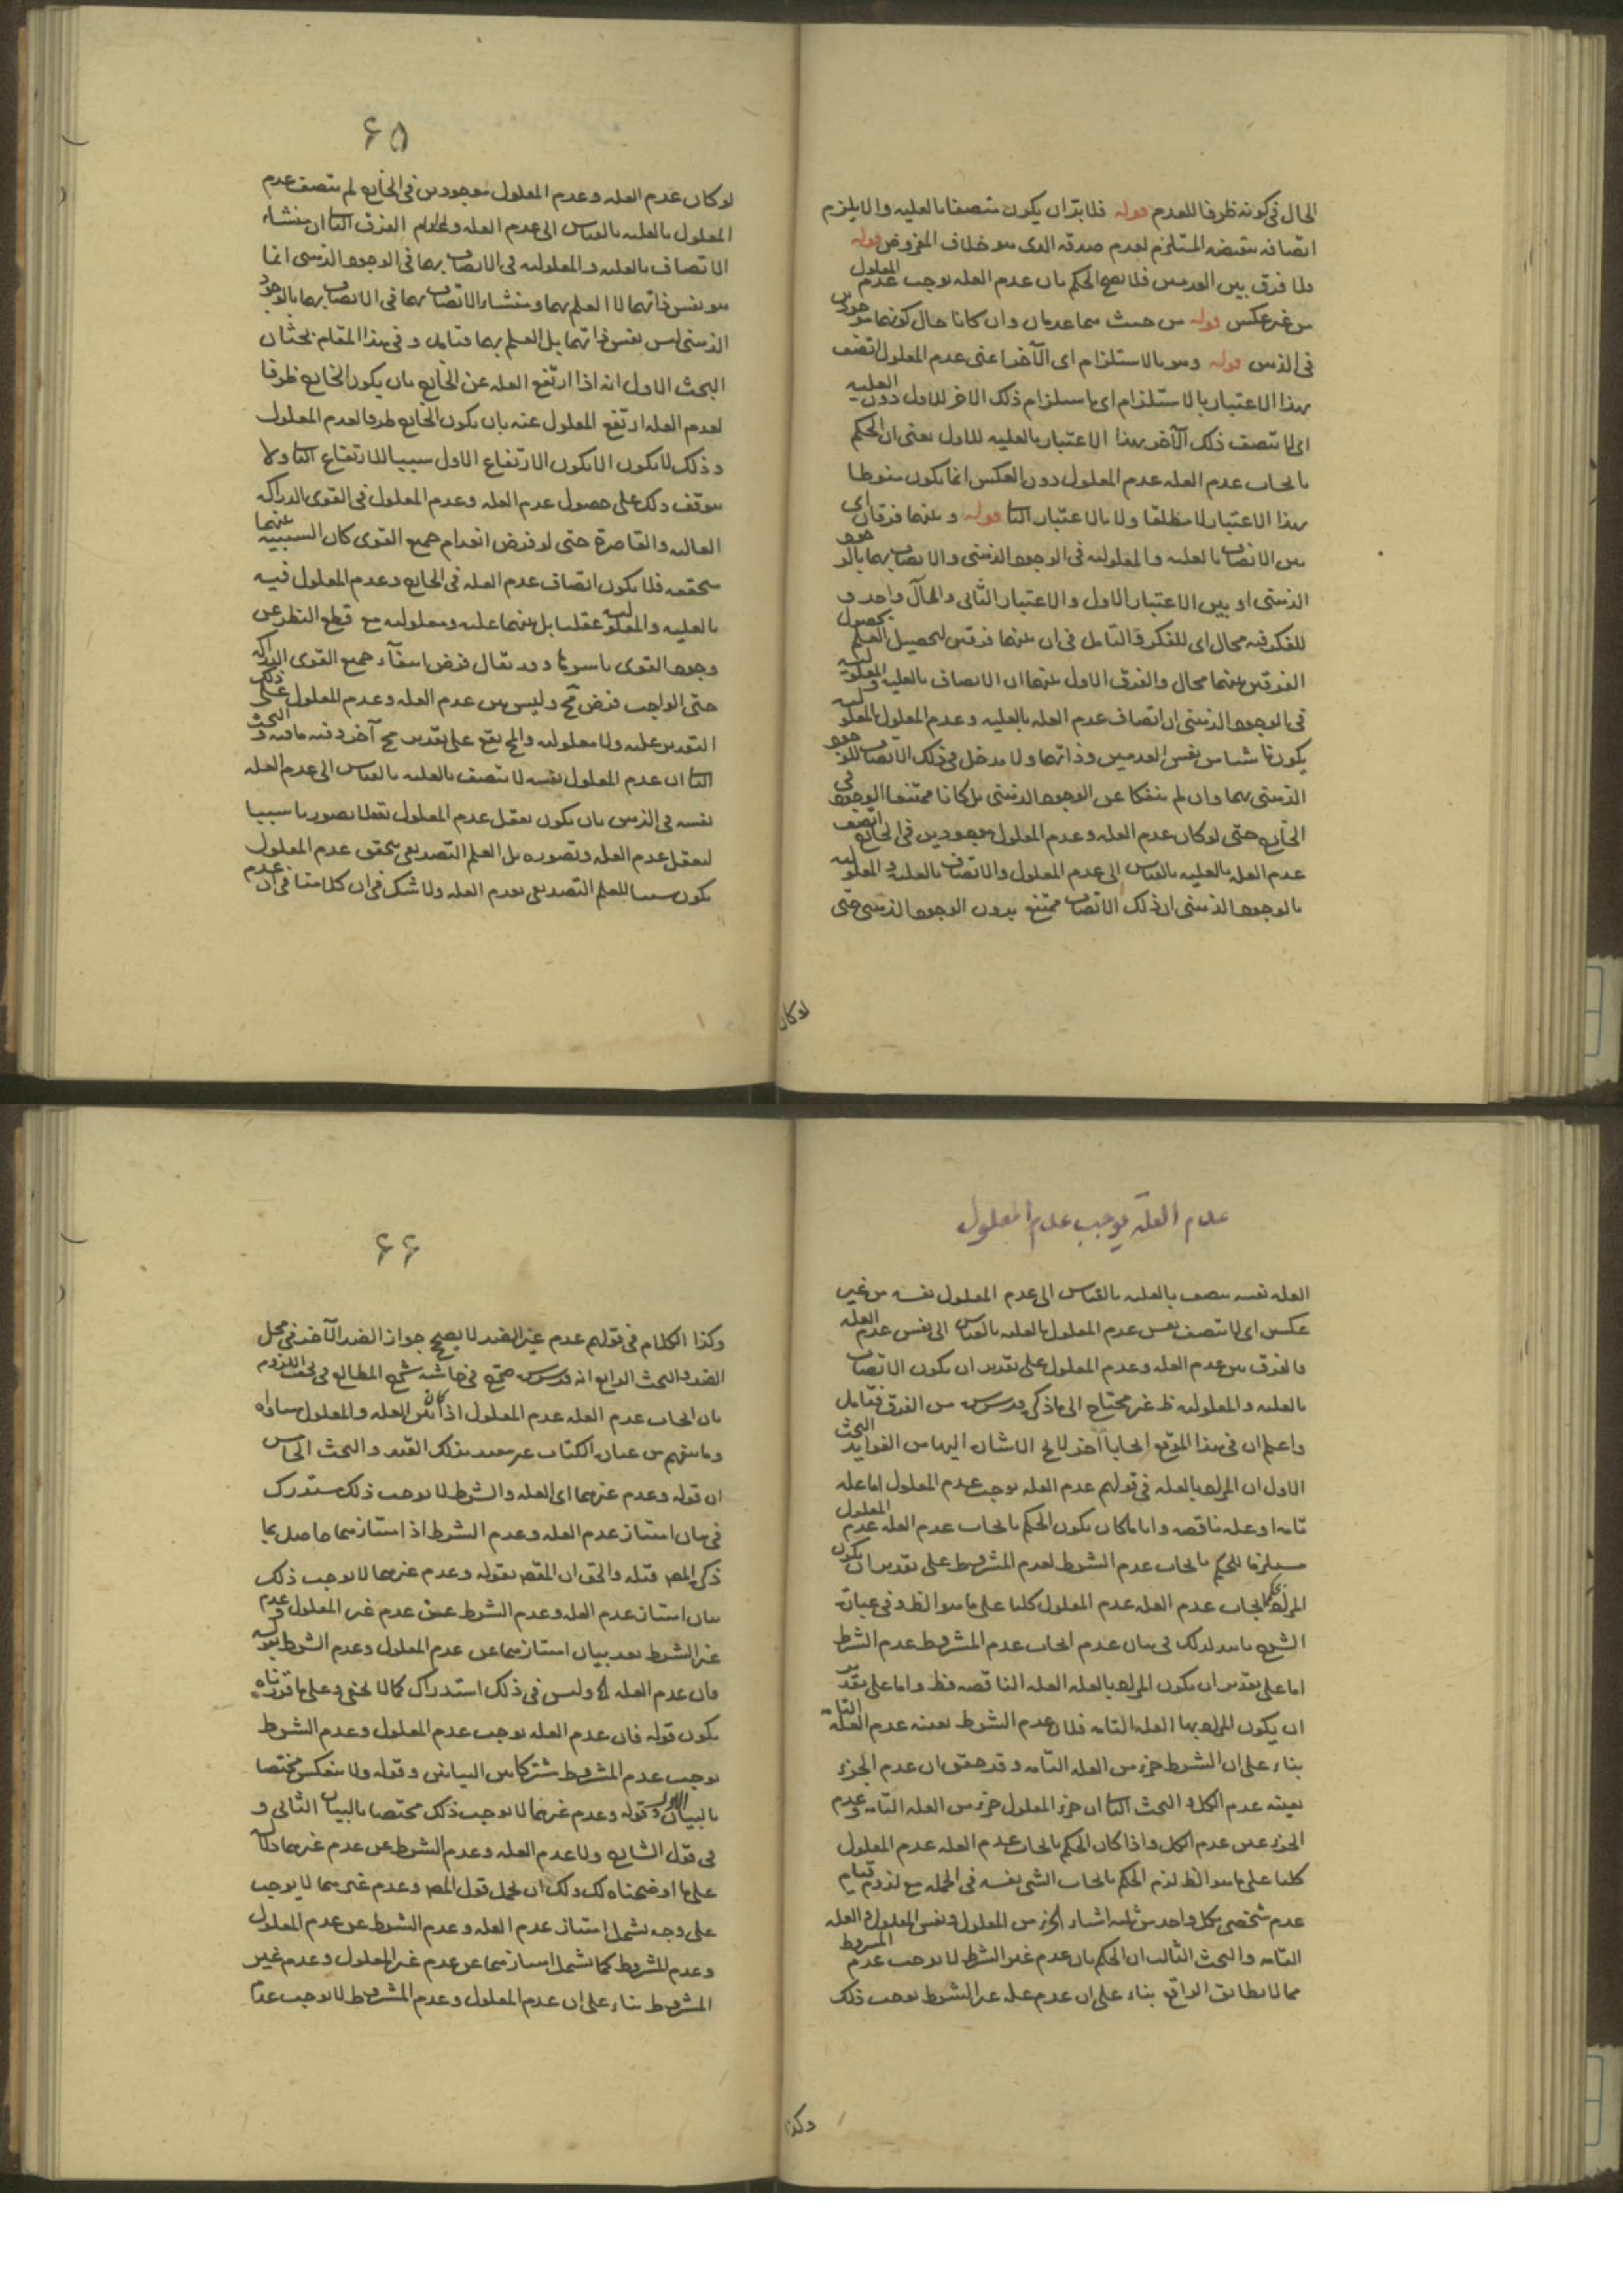 الحال فى كونه ظرفا للعدم قوله فلا بدّ ان يكون متصفا بالعليه والا يلزم
اتصافه بنقيضه المستلزم لعدم صدقه الذى هو خلاف المفروض قوله
ولا فرق بين العدمين فلا يصح الحكم بان عدم العله يوجب عدم المعلول
من غير عكس قوله من حيث هما عدمان وان كانا حال كونهما موجودين
فى الذهن قوله وهو بالاستلزام اى الآخر اعنى عدم المعلول اتصف
بهذا الاعتبار بالاستلزام اى باستلزام ذلك الآخر للاول دون العليه
اى لا يتصف ذلك الآخر بهذا الاعتبار بالعليه للاول يعنى ان الحكم
بايجاب عدم العله عدم المعلول دون العكس انما يكون منوطا
بهذا الاعتبار لا مطلقا ولا بالاعتبار الثا قوله وبينهما فرقان اى
بين الاتصاف بالعليه والمعلوليه فى الوجود الذهنى والاتصاف بهما بالوجود
الذهنى او بين الاعتبار الاول والاعتبار الثانى والمآل واحد و
للفكر فيه مجال اى للفكر والتامل فى ان بينهما فرقين لتحصيل العلم بحصول
الفرقين بينهما مجال والفرق الاول بينهما ان الاتصاف بالعليه والمعلوليه
فى الوجود الذهنى اى اتصاف عدم العله بالعليه وعدم المعلول بالمعلوليه
يكون ناشيا من نفس العدمين وذاتهما ولا مدخل فى ذلك الاتصاف للوجود
الذهنى بهما وان لم ينفكا عن الوجود الذهنى بل كانا ممتنعا الوجود فى
الخارج حتى لو كان عدم العله وعدم المعلول موجودين فى الخارج اتصف
عدم العله بالعليه بالقياس الى عدم المعلول والاتصاف بالعليه والمعلوليه
بالوجود الذهنى ان ذلك الاتصاف ممتنع بدون الوجود الذهنى حتى
لوكان
۶۵
لو كان عدم العله وعدم المعلول موجودين فى الخارج لم يتصف عدم
المعلول بالعليه بالقياس الى عدم العله والفرق الثا ان منشاء
الاتصاف بالعليه والمعلوليه فى الاتصاف بهما فى الوجود الذهنى انما
هو نفس ذاتهما لا العلم بهما ومنشاء الاتصاف بهما فى الاتصاف بهما بالوجود
الذهنى ليس نفس ذاتهما بل العلم بهما فتامل وفى هذا المقام بحثان
البحث الاول انه اذا ارتفع العله عن الخارج بان يكون الخارج ظرفا
لعدم العله ارتفع المعلول عنه بان يكون الخارج ظرفا لعدم المعلول
وذلك لا يكون الا بكون الارتفاع الاول سببا للارتفاع الثا ولا
يتوقف ذلك على حصول عدم العله وعدم المعلول فى القوى الدراكه
العاليه والقاصرة حتى لو فرض انعدام جميع القوى كان السببيه بينهما
متحققه فلا يكون اتصاف عدم العله فى الخارج وعدم المعلول فيه
بالعليه والمعلوليه عقليا بل بينهما عليه ومعلوليه مع قطع النظر عن
وجود القوى باسرها وقد يقال فرض انتفاء جميع القوى الدراكه
حتى الواجب فرض مح وليس بين عدم العله وعدم المعلول على ذلك
التقدير عليه ولا معلوليه والمح يقع على تقدير مح آخر وفيه ما فيه والبحث
الثا ان عدم المعلول نفسه لا يتصف بالعليه بالقياس الى عدم العله
نفسه فى الذهن بان يكون تعقل عدم المعلول تعقلا تصوريا سببا
لتعقل عدم العله وتصوره بل العلم التصديقى بتحقق عدم المعلول
يكون سببا للعلم التصديقى بعدم العله ولا شك فى ان كلامنا فى ان عدم
عدم العله يوجب عدم المعلول
العله نفسه يتصف بالعليه بالقياس الى عدم المعلول نفسه من غير
عكس اى لا يتصف نفس عدم المعلول بالعليه بالقياس الى نفس عدم العله
فالفرق بين عدم العله وعدم المعلول على تقدير ان يكون الاتصاف
بالعليه والمعلوليه ظ غير محتاج الى ما ذكره قدس سره من الفرق فتامل
واعلم ان فى هذا الموضع ابحاثا آخر لا يخ الاشارة اليها من الفوايد البحث
الاول ان المراد بالعله فى قولهم عدم العله يوجب عدم المعلول اما عله
تامه او عله ناقصه وايا ما كان يكون الحكم بايجاب عدم العله عدم المعلول
مستلزما للحكم بايجاب عدم الشرط لعدم المشروط على تقدير ان يكون
المراد ايجاب عدم العله عدم المعلول كليا على ما هو الظ وفى عبارة
الشرح ما يدل على ذلك فى بيان عدم ايجاب عدم المشروط عدم الشرط
اما على تقدير ان يكون المراد بالعله العله الناقصه فظ واما على تقدير
ان يكون المراد بها العله التامه فلان عدم الشرط بعينه عدم العله التامه
بناء على ان الشرط جزء من العله التامه وقد حقق ان عدم الجزء
بعينه عدم الكل والبحث الثا ان جزء المعلول جزء من العله التامه وعدم
الجزء عين عدم الكل واذا كان الحكم بايجاب عدم العله عدم المعلول
كليا على ما هو الظ لزم الحكم بايجاب الشى نفسه فى الجمله مع لزوم قيام
عدم شخصى بكل واحد من ثلثه اشياء الجزء من المعلول ونفس المعلول والعله
التامه والبحث الثالث ان الحكم بان عدم غير الشرط لا يوجب عدم المشروط
مما لا يطابق الواقع بناء على ان عدم عله غير الشرط يوجب ذلك
وكذا
۶۶
وكذا الكلام فى قولهم عدم غير الضد لا يصحح جواز الضد الآخر فى محل
الضد والبحث الرابع انه قدس سره صرح فى حاشيه شرح المطالع فى بحث اللزوم
بان ايجاب عدم العله عدم المعلول اذا كان بين العله والمعلول مساواه
وما يفهم من عبارة الكتاب غير مقيد بذلك القيد والبحث الخامس
ان قوله وعدم غيرهما اى العله والشرط لا يوجب ذلك مستدرك
فى بيان امتياز عدم العله وعدم الشرط اذ امتيازهما حاصل بما
ذكره المص قبله والحق ان المقصود بقوله وعدم غيرهما لا يوجب ذلك
بيان امتياز عدم العله وعدم الشرط عن عدم غير المعلول وعدم
غير الشرط بعد بيان امتيازهما عن عدم المعلول وعدم الشرط بقوله
فان عدم العله اه وليس فى ذلك استدراك كما لا يخفى وعلى ما قررناه
يكون قوله فان عدم العله يوجب عدم المعلول وعدم الشرط
يوجب عدم المشروط مشتركا بين البيانين وقوله ولا ينعكس مختصا
بالبيان الاول وقوله وعدم غيرهما لا يوجب ذلك مختصا بالبيان الثانى و
فى قول الشارح ولا عدم العله وعدم الشرط عن عدم غيرهما دلاله
على ما اوضحناه لك ولك ان تحمل قول المص وعدم غيرهما لا يوجب
على وجه يشمل امتياز عدم العله وعدم الشرط عن عدم المعلول
وعدم المشروط كما يشمل امتيازهما عن عدم غير المعلول وعدم غير
المشروط بناء على ان عدم المعلول وعدم المشروط لا يوجب عدم